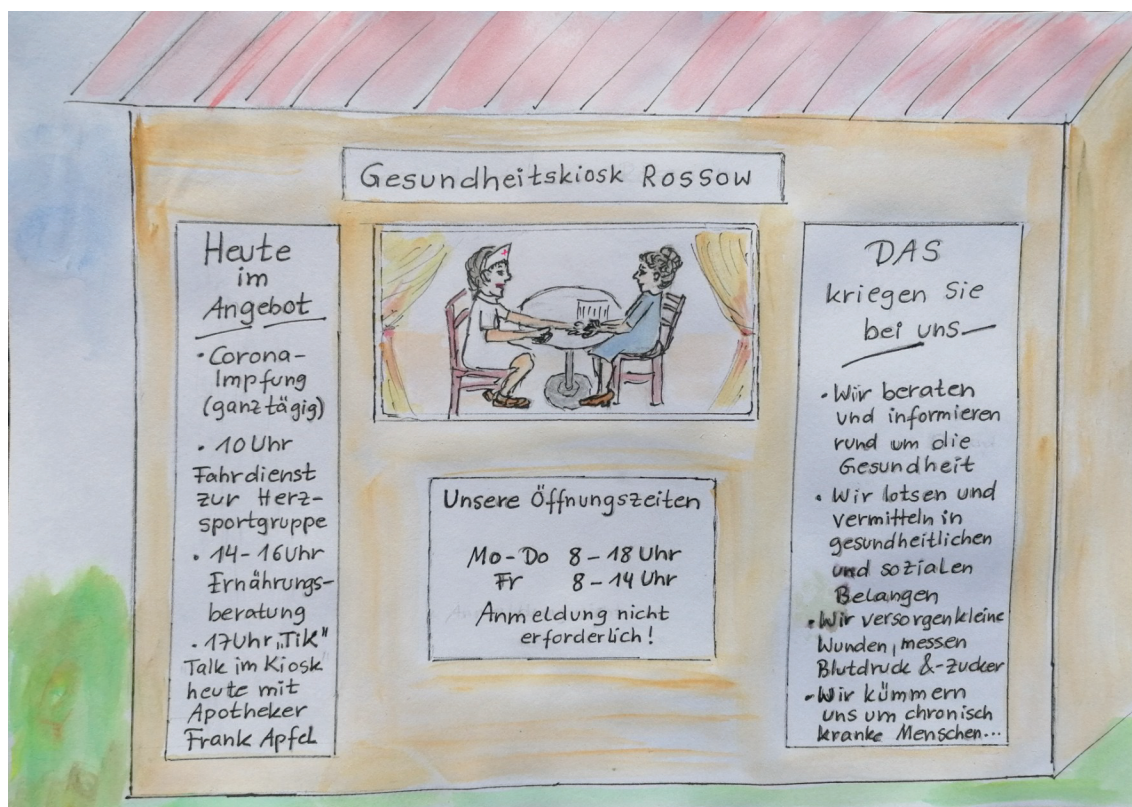 Gesundheitskiosk Rossow
Heute
im
Angebot
• Corona-
Impfung
(ganztägig)
• 10 Uhr
Fahrdienst
zur Herz-
sportgruppe
• 14-16 Uhr
Ernährungs-
beratung
• 17 Uhr „TiK"
Talk im Kiosk
heute mit
Apotheker
Frank Apfel
Unsere Öffnungszeiten
Mo-Do 8-18 Uhr
Fr 8-14 Uhr
Anmeldung nicht
erforderlich!
DAS
kriegen Sie
bei uns
• Wir beraten
und informieren
rund um die
Gesundheit
• Wir lotsen und
vermitteln in
gesundheitlichen
und sozialen
Belangen
• Wir versorgen kleine
Wunden, messen
Blutdruck & -zucker
• Wir kümmern
uns um chronisch
kranke Menschen...